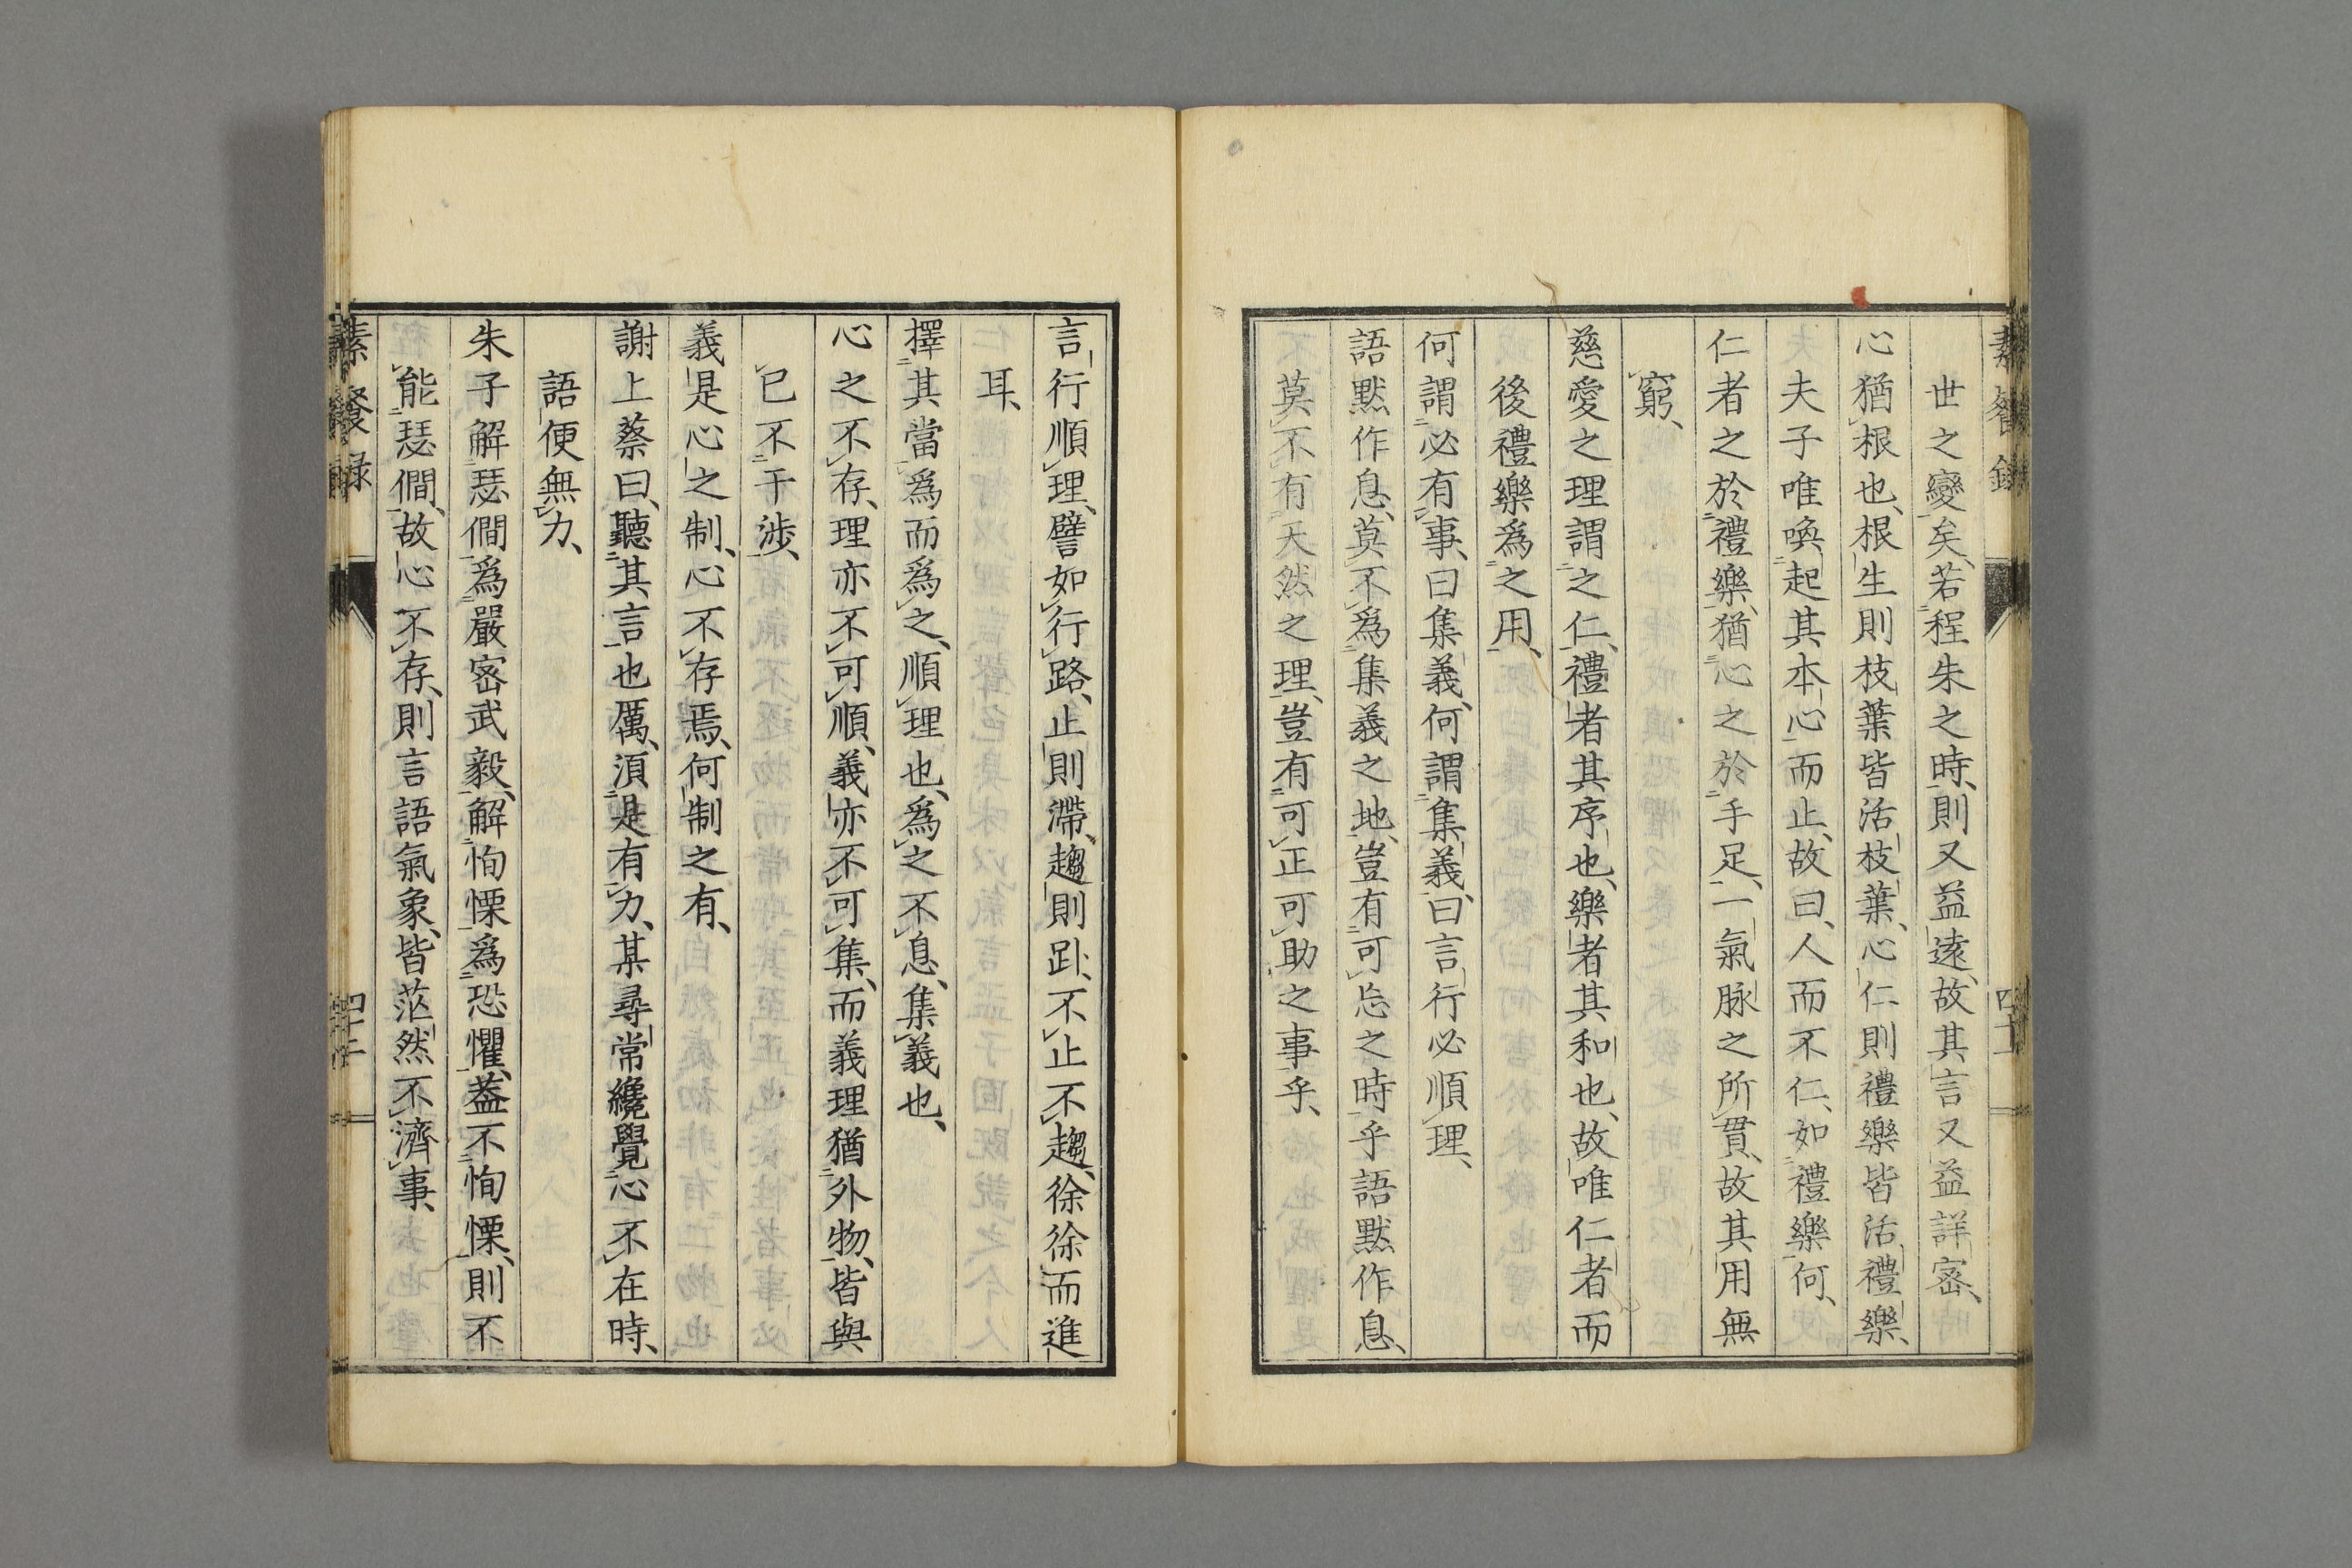 世之變矣、若程朱之時、則又益遠、故其言又益詳密、
心猶根也、根生則枝葉皆活枝葉、心仁則禮樂皆活禮樂、
夫子唯喚起其本心而止、故曰、人而不仁、如禮樂何、
仁者之於禮樂、猶心之於手足、一氣脉之所貫、故其用無
窮、
慈愛之理謂之仁、禮者其序也、樂者其和也、故唯仁者而
後禮樂爲之用、
何謂必有事、曰集義、何謂集義、曰言行必順理、
語默作息、莫不爲集義之地、豈有可忘之時乎語默作息、
莫不有天然之理、豈有可正可助之事乎、
言行順理、譬如行路、止則滯、趨則趴、不止不趨、徐徐而進
耳、
擇其當爲而爲之、順理也、爲之不息、集義也、
心之不存、理亦不可順、義亦不可集、而義理猶外物、皆與
已不干涉、
義是心之制、心不存焉、何制之有、
謝上蔡曰、聽其言也厲、須是有力、某尋常纔覺心不在時、
語便無力、
朱子解瑟僩爲嚴密武毅、解恂慄爲恐懼、葢不恂慄、則不
能瑟僩、故心不存、則言語氣象、皆茫然不濟事、
素餐録
四十二